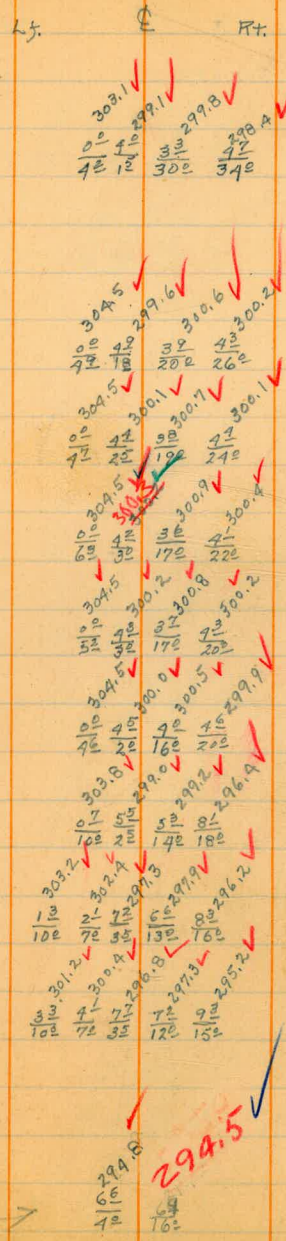 Lf. ℄ Rt.
303.1 299.1 299.8 298.4
0⁰/4² 4⁰/1⁵ 3³/30⁰ 4⁷/34⁰
304.5 299.6 300.6 300.2
0⁰/4⁹ 4⁹/1⁸ 3⁹/20⁰ 4³/26⁰
304.5 300.1 300.7 300.1
0⁰/4⁷ 4⁴/2⁵ 3⁸/19⁰ 4⁴/24⁰
304.5 300.3 300.9 300.4
0⁰/6³ 4²/3⁰ 3⁶/17⁰ 4¹/22⁰
304.5 300.2 300.8 300.2
0⁰/5³ 4³/3⁰ 3⁷/17⁰ 4³/20⁰
304.5 300.0 300.5 299.9
0⁰/4⁶ 4⁵/2⁰ 4⁰/16⁰ 4⁶/20⁰
303.8 299.0 299.2 296.4
0⁷/10⁰ 5⁵/2⁵ 5³/14⁰ 8¹/18⁰
303.2 302.4 297.3 297.9 296.2
1³/10⁰ 2¹/7⁰ 7²/3⁵ 6⁶/13⁰ 8³/16⁰
301.2 300.4 296.8 297.3 295.2
3³/10⁰ 4¹/7⁰ 7⁷/3⁵ 7²/12⁰ 9³/15⁰
294.8 294.5
6⁶/4⁰ 6⁹/16⁰